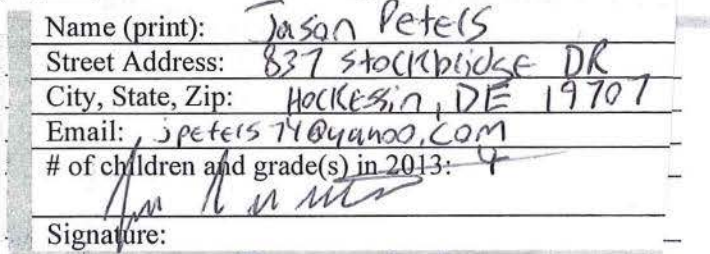 Name (print): Jason Peters
Street Address: 837 Stockbridge DR
City, State, Zip: Hockessin, DE 19707
Email: jpeters74@yahoo.com
# of children and grade(s) in 2013: 4
Signature: